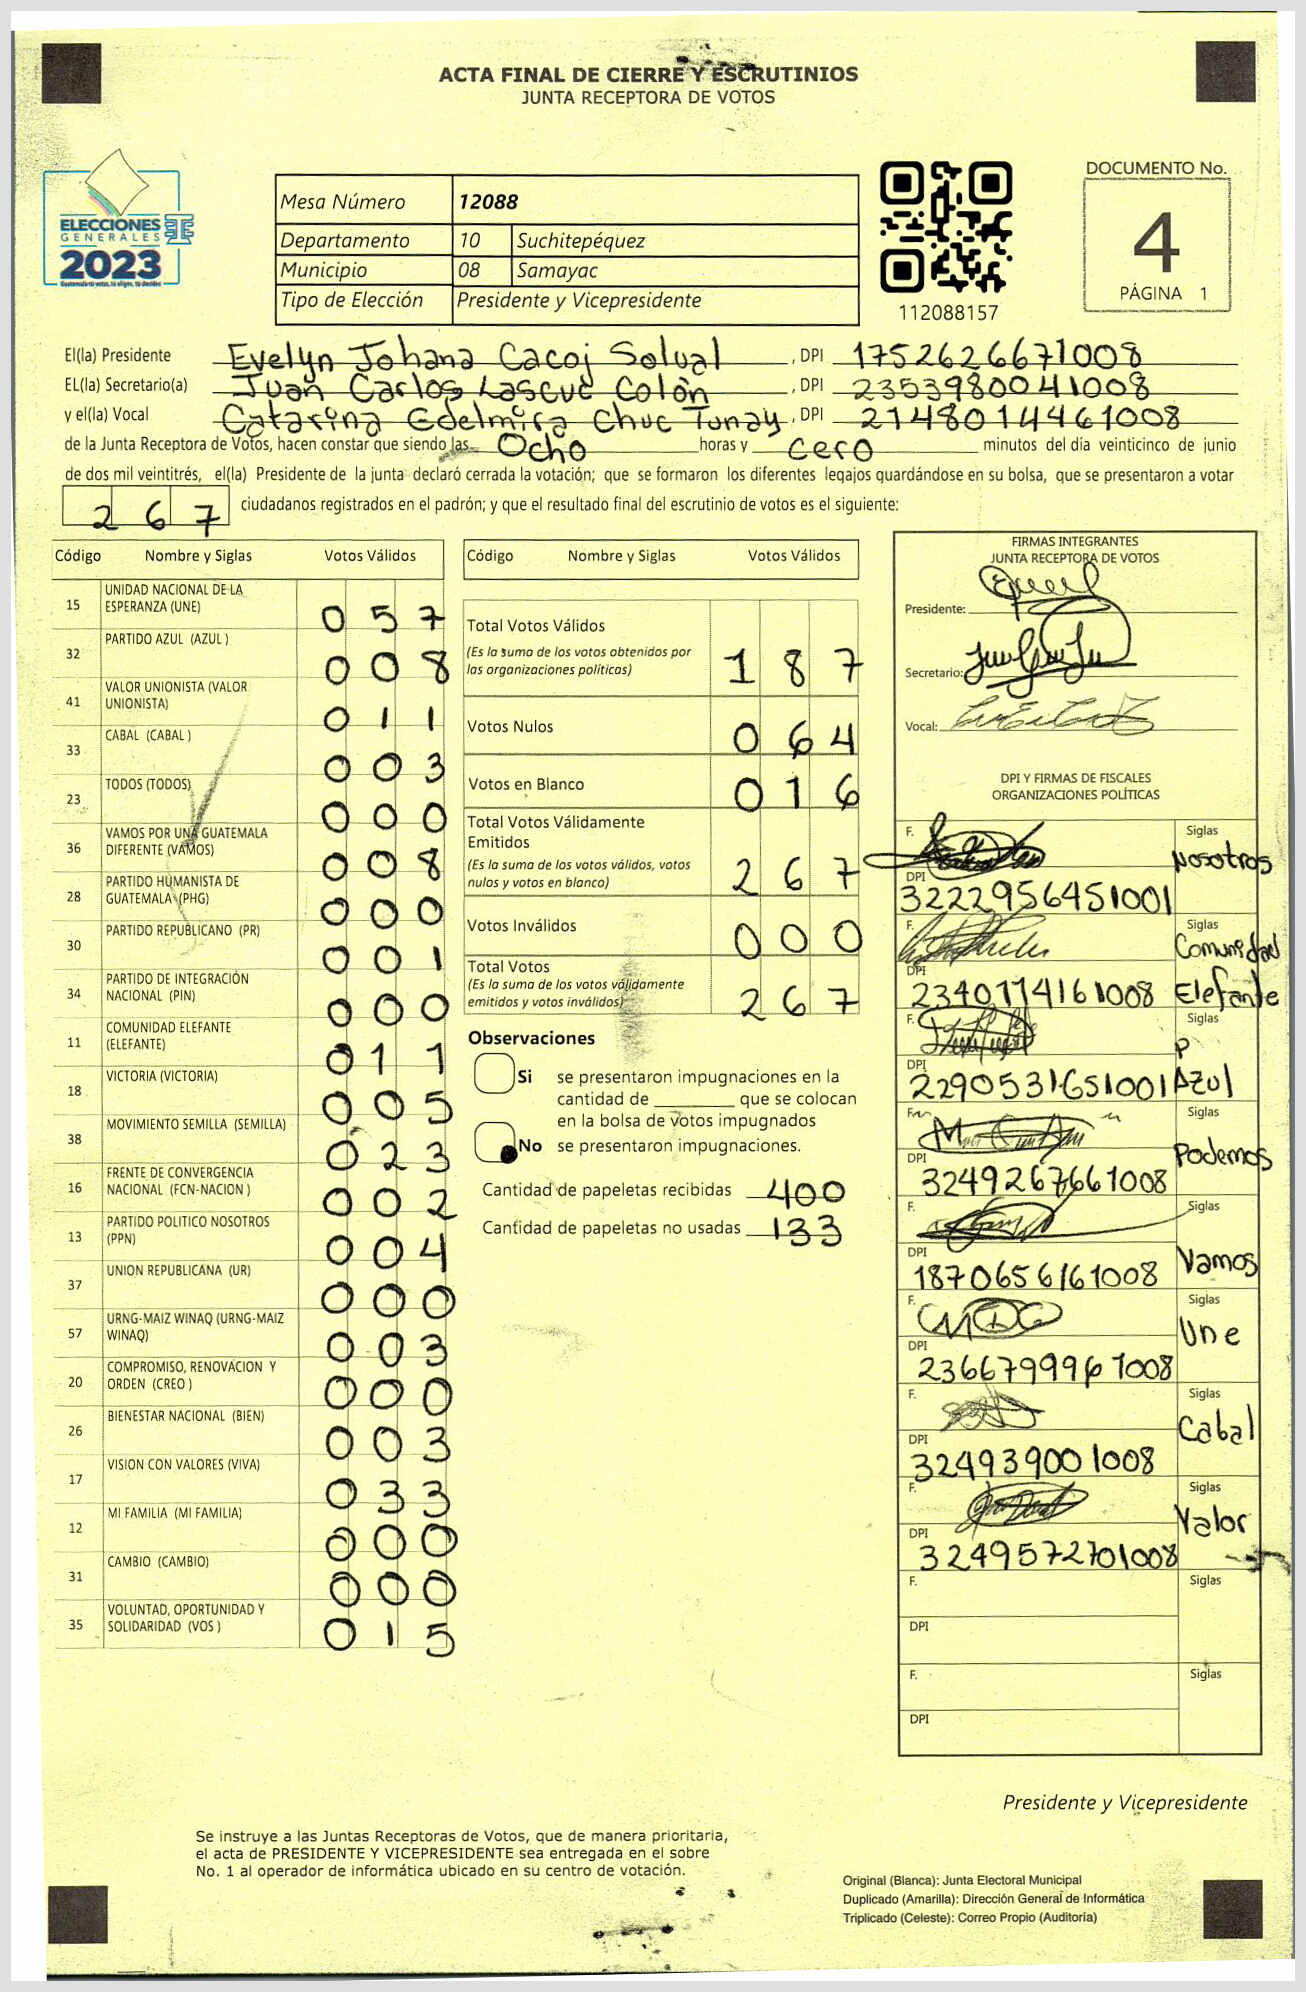 ACTA FINAL DE CIERRE Y ESCRUTINIOS
JUNTA RECEPTORA DE VOTOS
ELECCIONES
GENERALES
2023
Mesa Número 12088
Departamento 10 Suchitepéquez
Municipio 08 Samayac
Tipo de Elección Presidente y Vicepresidente
112088157
DOCUMENTO No.
4
PÁGINA 1
El(la) Presidente Evelyn Johana Cacoj Solval, DPI 1752626671008
EL(la) Secretario(a) Juan Carlos Lascue Colón, DPI 2353980041008
y el(la) Vocal Catarina Edelmira Chuc Tunay, DPI 2148014461008
de la Junta Receptora de Votos, hacen constar que siendo las Ocho horas y cero minutos del día veinticinco de junio
de dos mil veintitrés, el(la) Presidente de la junta declaró cerrada la votación; que se formaron los diferentes legajos guardándose en su bolsa, que se presentaron a votar
267 ciudadanos registrados en el padrón; y que el resultado final del escrutinio de votos es el siguiente:
Código Nombre y Siglas Votos Válidos
15 UNIDAD NACIONAL DE LA ESPERANZA (UNE) 057
32 PARTIDO AZUL (AZUL ) 008
41 VALOR UNIONISTA (VALOR UNIONISTA) 011
33 CABAL (CABAL ) 003
23 TODOS (TODOS) 000
36 VAMOS POR UNA GUATEMALA DIFERENTE (VAMOS) 008
28 PARTIDO HUMANISTA DE GUATEMALA (PHG) 000
30 PARTIDO REPUBLICANO (PR) 001
34 PARTIDO DE INTEGRACIÓN NACIONAL (PIN) 000
11 COMUNIDAD ELEFANTE (ELEFANTE) 011
18 VICTORIA (VICTORIA) 005
38 MOVIMIENTO SEMILLA (SEMILLA) 023
16 FRENTE DE CONVERGENCIA NACIONAL (FCN-NACION ) 002
13 PARTIDO POLITICO NOSOTROS (PPN) 004
37 UNION REPUBLICANA (UR) 000
57 URNG-MAIZ WINAQ (URNG-MAIZ WINAQ) 003
20 COMPROMISO, RENOVACION Y ORDEN (CREO ) 000
26 BIENESTAR NACIONAL (BIEN) 003
17 VISION CON VALORES (VIVA) 033
12 MI FAMILIA (MI FAMILIA) 000
31 CAMBIO (CAMBIO) 000
35 VOLUNTAD, OPORTUNIDAD Y SOLIDARIDAD (VOS ) 015
Código Nombre y Siglas Votos Válidos
Total Votos Válidos 187
(Es la suma de los votos obtenidos por
las organizaciones políticas)
Votos Nulos 064
Votos en Blanco 016
Total Votos Válidamente
Emitidos 267
(Es la suma de los votos válidos, votos
nulos y votos en blanco)
Votos Inválidos 000
Total Votos 267
(Es la suma de los votos válidamente
emitidos y votos inválidos)
Observaciones
Si se presentaron impugnaciones en la
cantidad de ________ que se colocan
en la bolsa de votos impugnados
No se presentaron impugnaciones.
Cantidad de papeletas recibidas 400
Cantidad de papeletas no usadas 133
FIRMAS INTEGRANTES
JUNTA RECEPTORA DE VOTOS
Presidente:
Secretario:
Vocal:
DPI Y FIRMAS DE FISCALES
ORGANIZACIONES POLÍTICAS
F. Siglas Nosotros
DPI 3222956451001
F. Siglas Comunidad Elefante
DPI 2340774161008
F. Siglas P Azul
DPI 2290531651001
F. Siglas Podemos
DPI 3249267661008
F. Siglas Vamos
DPI 1870656161008
F. Siglas Une
DPI 2366799961008
F. Siglas Cabal
DPI 324939001008
F. Siglas Valor
DPI 3249572701008
F. Siglas
DPI
F. Siglas
DPI
Presidente y Vicepresidente
Se instruye a las Juntas Receptoras de Votos, que de manera prioritaria,
el acta de PRESIDENTE Y VICEPRESIDENTE sea entregada en el sobre
No. 1 al operador de informática ubicado en su centro de votación.
Original (Blanca): Junta Electoral Municipal
Duplicado (Amarilla): Dirección General de Informática
Triplicado (Celeste): Correo Propio (Auditoría)